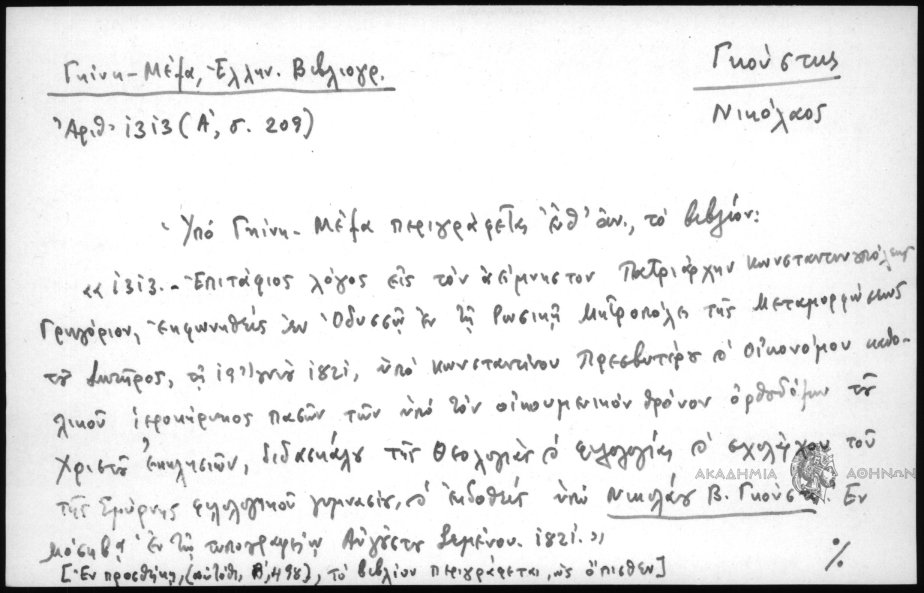 Γκίνη - Μέξα, Ἑλλην. Βιβλιογρ.
Γκούστης
Ἀριθ. 1313 (Α', σ. 209)
Νικόλαος
Ὑπό Γκίνη - Μέξα περιγράφεται ἐνθ' ἀν., τό βιβλίον:
«1313. - Ἐπιτάφιος λόγος εἰς τόν ἀείμνηστον Πατριάρχην Κωνσταντινουπόλεως
Γρηγόριον, ἐκφωνηθείς ἐν Ὀδυσσῷ ἐν τῇ Ρωσικῇ Μητροπόλει τῆς Μεταμορφώσεως
τοῦ Σωτῆρος, τῇ 19 Ἰουνίου 1821, ὑπό Κωνσταντίνου Πρεσβυτέρου & Οἰκονόμου καθο-
λικοῦ ἱεροκήρυκος πασῶν τῶν ὑπό τόν οἰκουμενικόν θρόνον ὀρθοδόξων τοῦ
Χριστοῦ ἐκκλησιῶν, διδασκάλου τῆς Θεολογίας & φιλολογίας & σχολάρχου τοῦ
τῆς Σμύρνης φιλολογικοῦ γυμνασίου, & ἐκδοθείς ὑπό Νικολάου Β. Γκούστη. Ἐν
Μόσκβᾳ ἐν τῇ τυπογραφίᾳ Αὐγούστου Σεμένου. 1821.»
[Ἐν προσθήκῃ, (αὐτόθι, Β', 498), τό βιβλίον περιγράφεται, ὡς ὄπισθεν]
%
ΑΚΑΔΗΜΙΑ ΑΘΗΝΩΝ